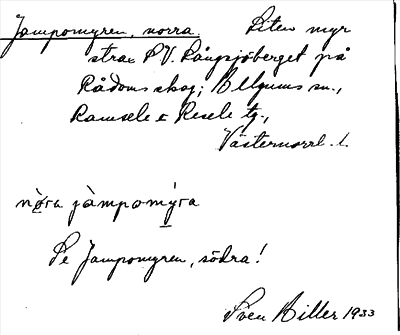 Jampomyren, norra. Liten myr
strax SV. Långsjöberget på
Rådoms skog; Ullgums sn.,
Ramsele & Resele tg.,
Västernorrl. l.
nòra jàmpomýra
Se Jampomyren, södra!
Sven Hiller 1933